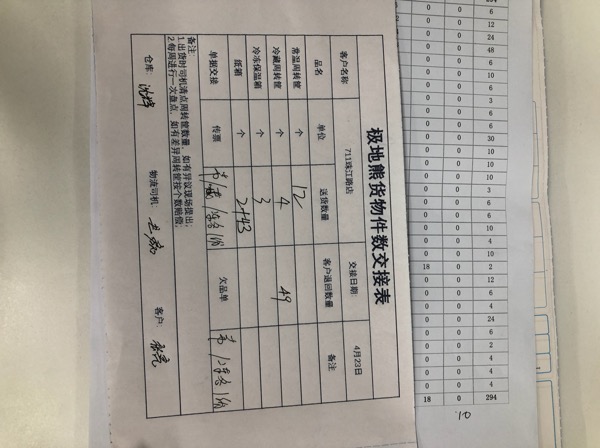 极地熊货物件数交接表
客户名称 711珠江路店 交接日期: 4月23日
品名 单位 送货数量 客户退回数量 备注
常温周转筐 个 12
冷藏周转筐 个 4 49
冷冻保温箱 个 3
纸箱 个 2+43
单据交接 传票 欠品单
备注:
1.出货时司机清点周转筐数量,如有异议现场提出;
2.每周进行一次盘点,如有差异周转筐按个数赔偿;
仓库: 物流司机: 客户:
0 0 6
0 0 12
0 0 24
0 0 48
0 0 6
0 0 10
0 0 6
0 0 3
0 0 6
0 0 6
0 0 30
0 0 10
0 0 10
0 0 10
0 0 3
0 0 6
0 0 6
0 0 10
0 0 4
0 0 10
18 0 2
0 0 12
0 0 6
0 0 4
0 0 24
0 0 6
0 0 2
0 0 4
0 0 4
0 0 4
18 0 294